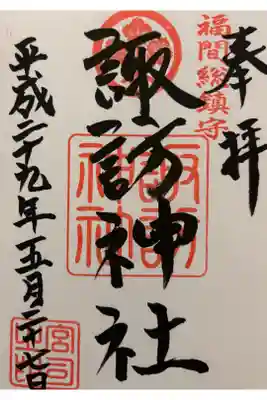 奉拝
福間総鎮守
諏訪神社
諏訪神社
平成二十九年五月二十七日
宮司